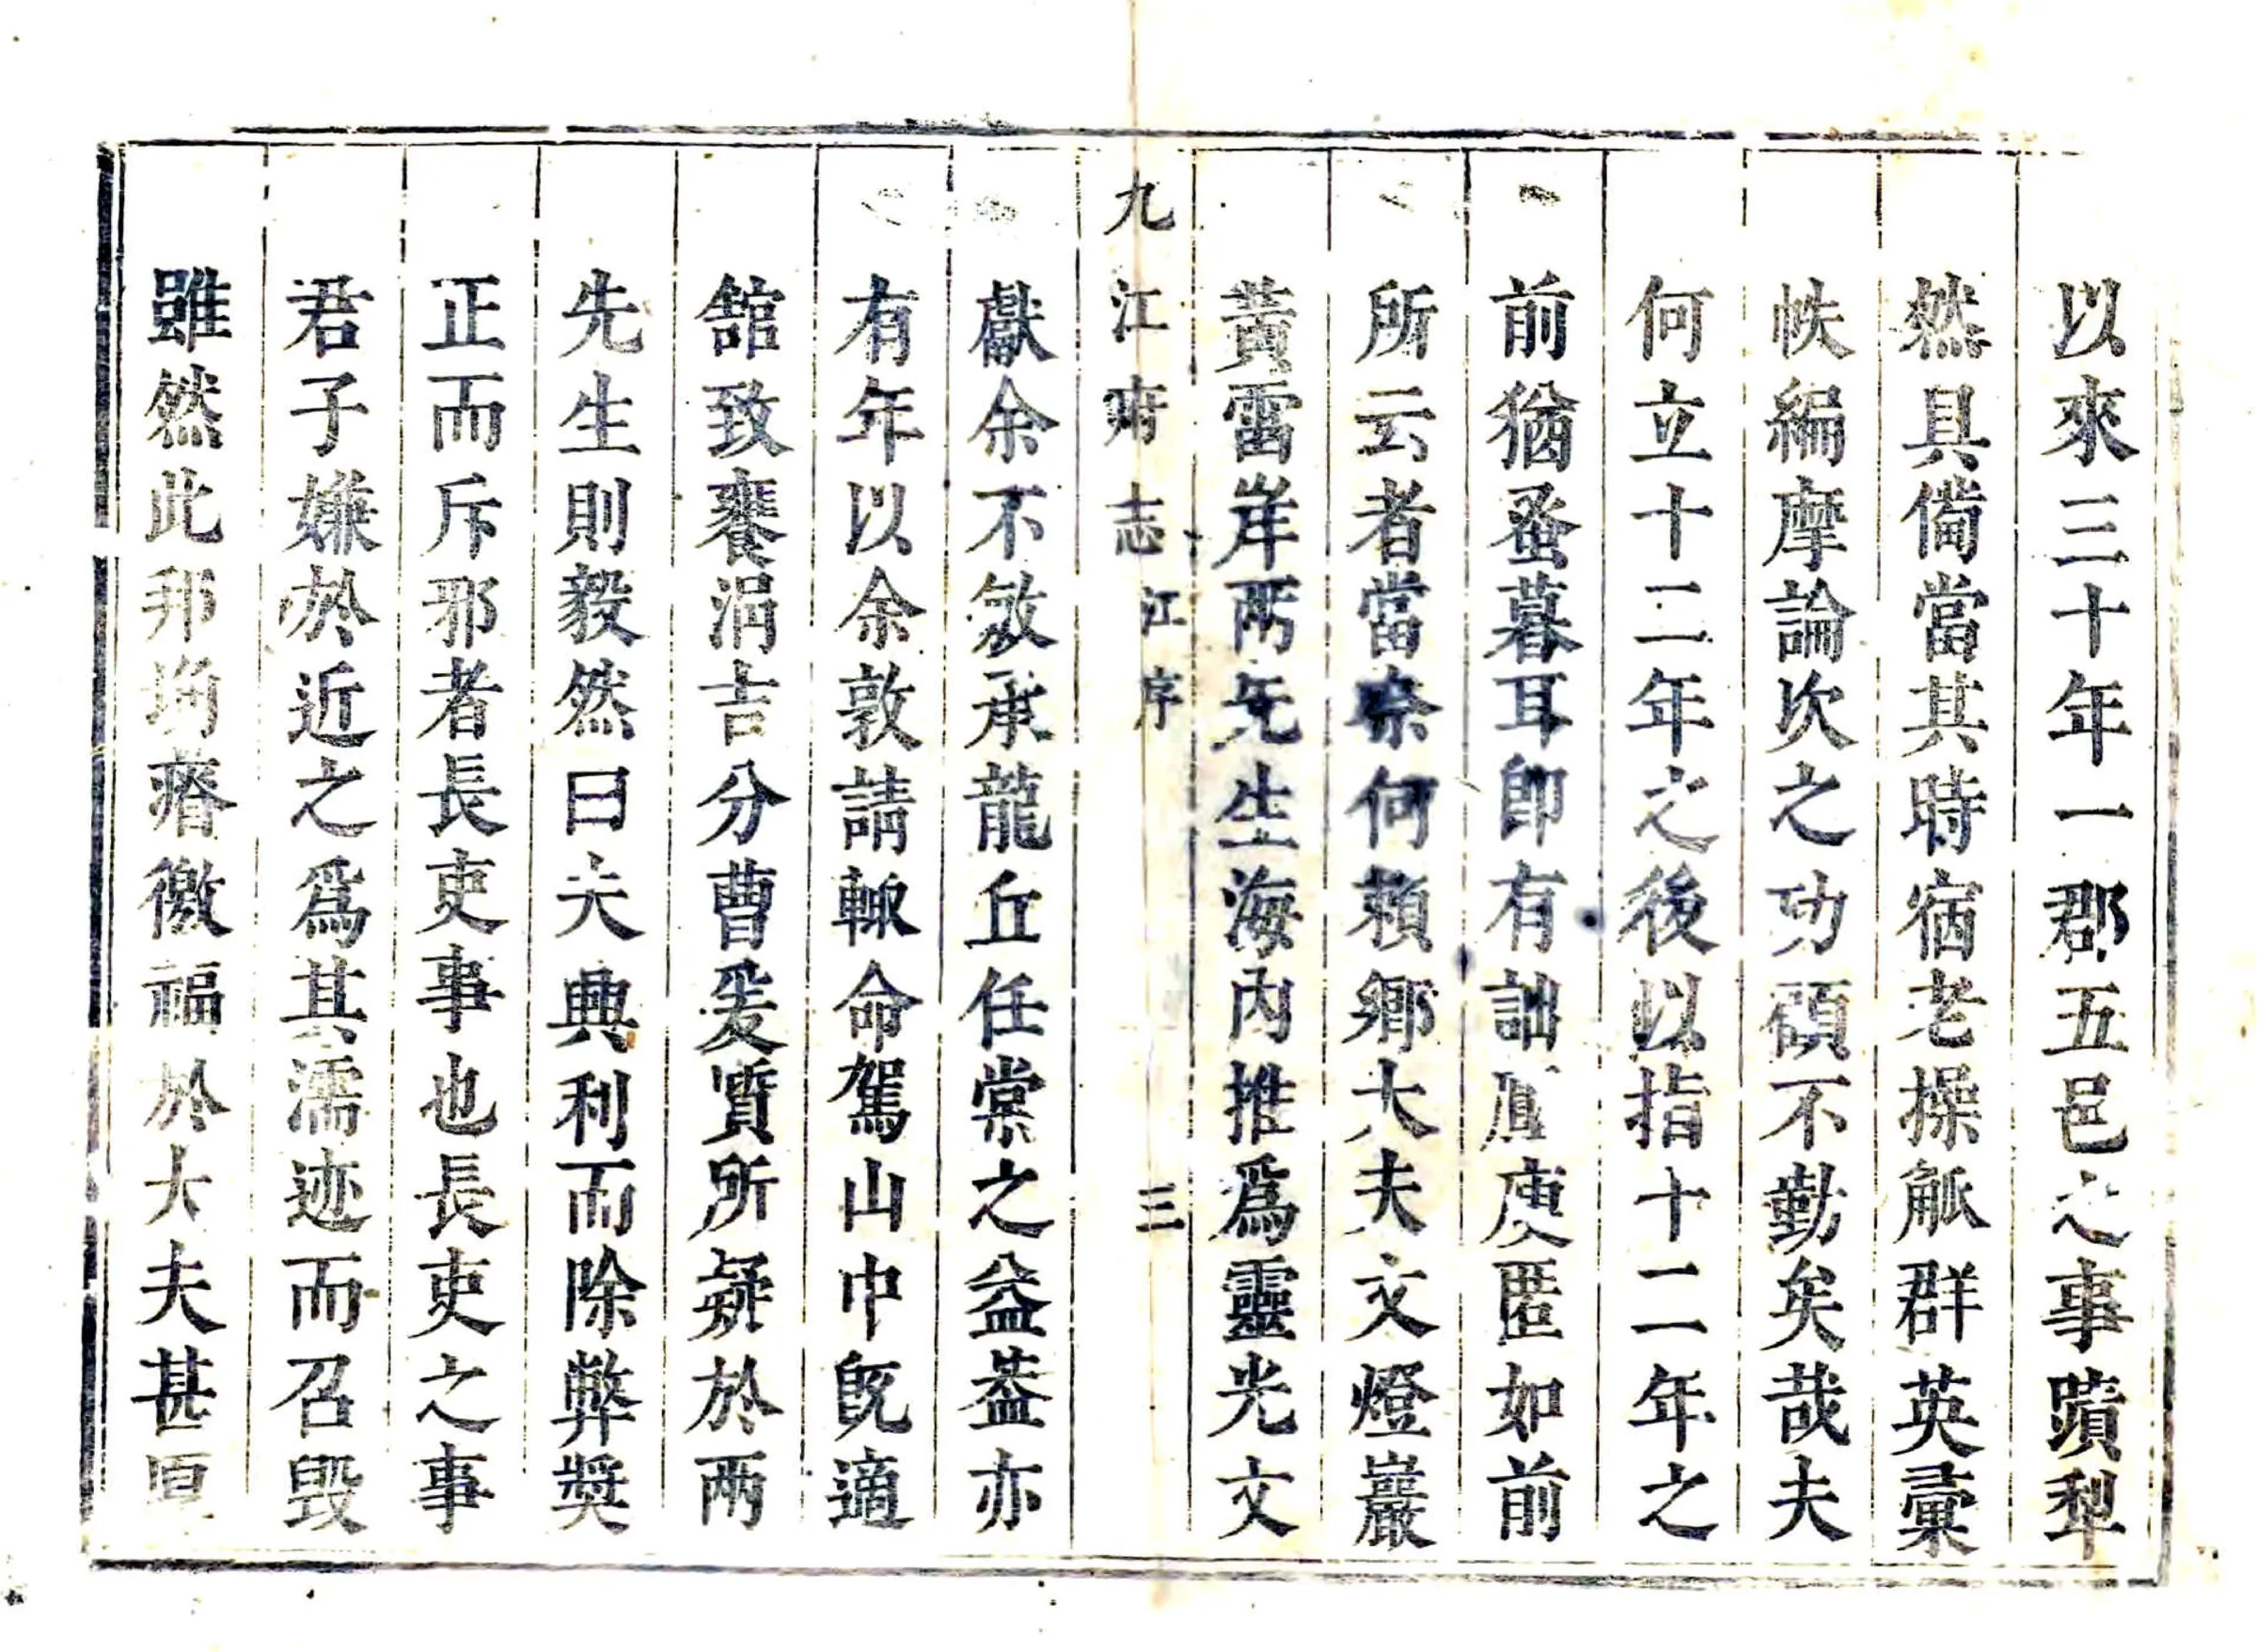 以來三十年一郡五邑之事蹟犁
然具備當其時宿老操觚群英彙
帙編摩論次之功碩不勤矣哉夫
何立十二年之後以指十二年之
前猶蚤暮耳即有詘匿如前
所云者當柰何賴鄉大夫文燈巖
黃雷岸兩先生海內推爲靈光文
九江府志 江序 三
獻余不敏承龍丘任棠之益益亦
有年以余敦請輙命駕山中旣適
舘致饔涓吉分曹爰質所疑於两
先生則毅然曰夫典利而除弊奬
正而斥邪者長吏事也長吏之事
君子嫌於近之爲其濡迹而召毁
雖然此邦瘠徼福於大夫甚